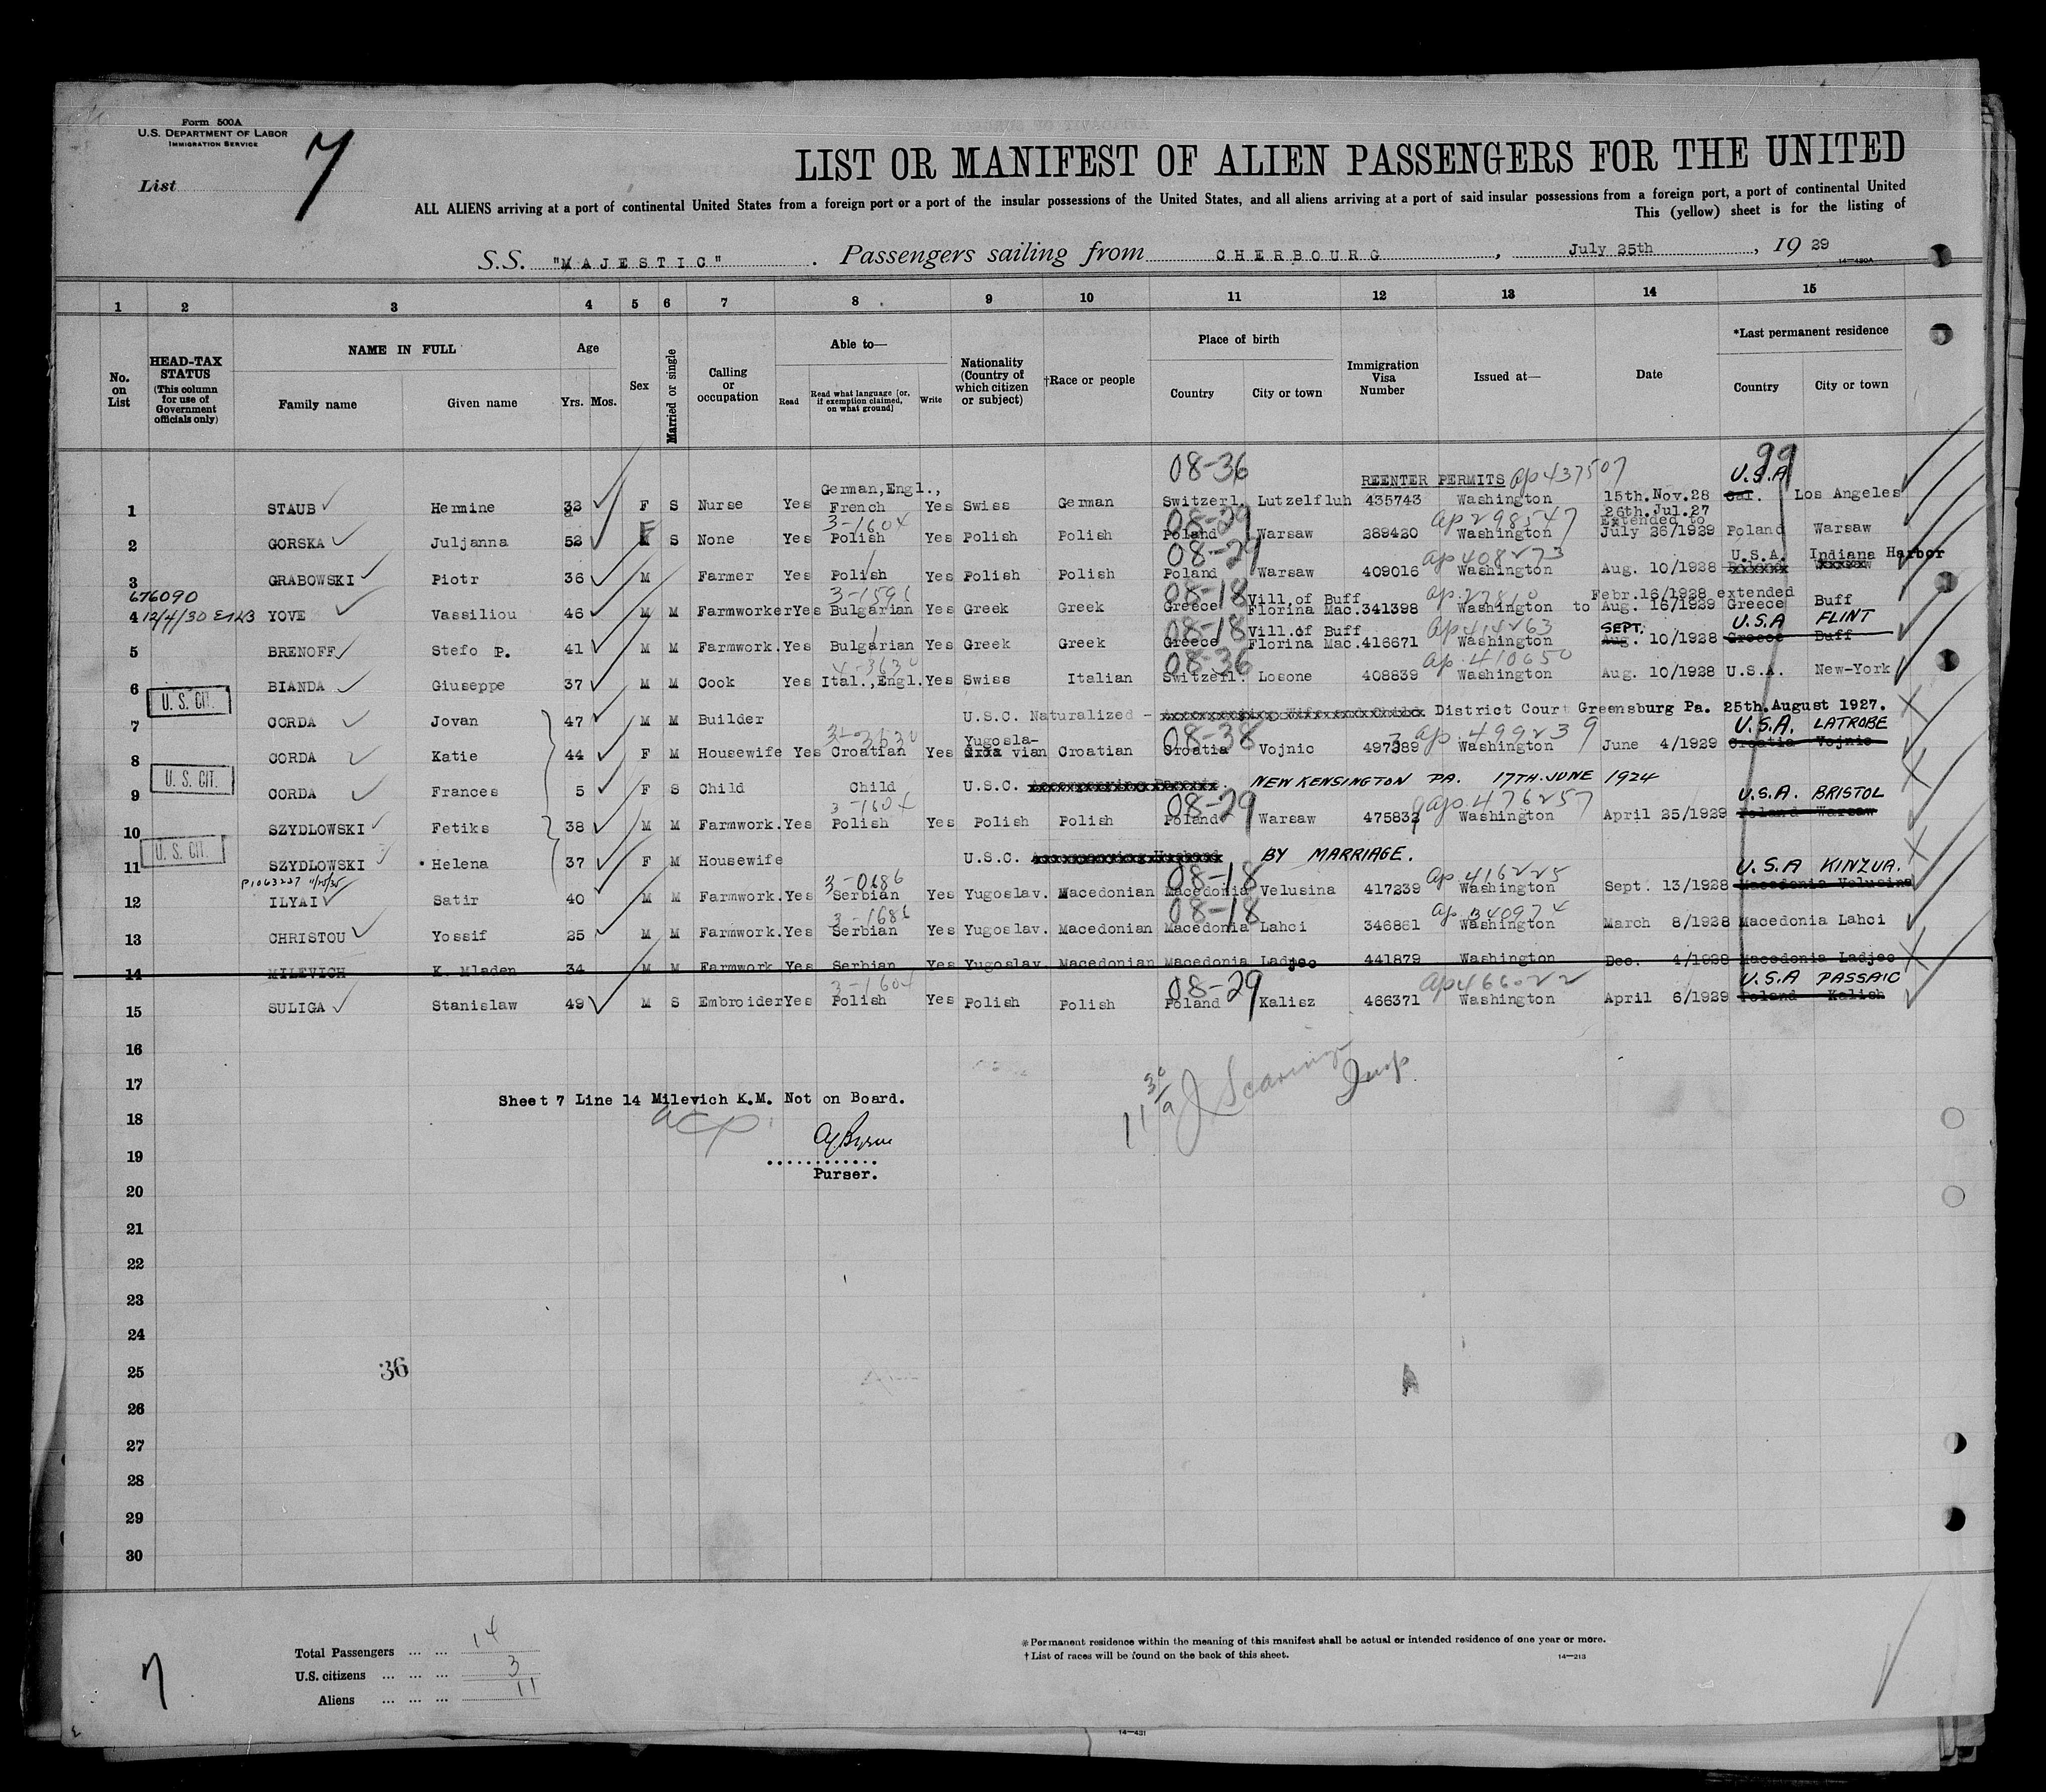 Form 500A
U.S. DEPARTMENT OF LABOR
IMMIGRATION SERVICE
List 7
LIST OR MANIFEST OF ALIEN PASSENGERS FOR THE UNITED
ALL ALIENS arriving at a port of continental United States from a foreign port or a port of the insular possessions of the United States, and all aliens arriving at a port of said insular possessions from a foreign port, a port of continental United
This (yellow) sheet is for the listing of
S.S. "MAJESTIC" . Passengers sailing from CHERBOURG , July 25th , 19 29
14—480A
1 2 3 4 5 6 7 8 9 10 11 12 13 14 15
No. on List
HEAD-TAX STATUS (This column for use of Government officials only)
NAME IN FULL
Family name Given name
Age
Yrs. Mos.
Sex
Married or single
Calling or occupation
Able to—
Read Read what language [or, if exemption claimed, on what ground] Write
Nationality (Country of which citizen or subject)
†Race or people
Place of birth
Country City or town
Immigration Visa Number
Issued at—
Date
*Last permanent residence
Country City or town
08-36 REENTER PERMITS ap 437507 99 U.S.A
1 STAUB Hermine 32 F S Nurse Yes German, Engl., French Yes Swiss German Switzerl. Lutzelfluh 435743 Washington 15th.Nov.28 Cal. Los Angeles
3-1604 08-29 ap 298547 26th.Jul.27 Extended to
2 GORSKA Juljanna 52 F S None Yes Polish Yes Polish Polish Poland Warsaw 289420 Washington July 26/1929 Poland Warsaw
08-29 ap 408273 U.S.A. Indiana Harbor
3 GRABOWSKI Piotr 36 M Farmer Yes Polish Yes Polish Polish Poland Warsaw 409016 Washington Aug. 10/1928
676090 3-1596 08-18 Vill.of Buff Febr.16/1928 extended
4 12/4/30 YOVE Vassiliou 46 M M Farmworker Yes Bulgarian Yes Greek Greek Greece Florina Mac. 341398 Washington to Aug. 16/1929 Greece Buff
08-18 Vill.of Buff ap 414263 SEPT. U.S.A FLINT
5 BRENOFF Stefo P. 41 M M Farmwork. Yes Bulgarian Yes Greek Greek Greece Florina Mac. 416671 Washington Aug. 10/1928 Greece Buff
4-3630 08-36 ap. 410650
6 BIANDA Giuseppe 37 M M Cook Yes Ital.,Engl. Yes Swiss Italian Switzerl. Losone 408839 Washington Aug. 10/1928 U.S.A. New-York
U. S. CIT.
7 CORDA Jovan 47 M M Builder U.S.C. Naturalized - District Court Greensburg Pa. 25th.August 1927.
3-3630 Yugosla- 08-38 ap. 499239 U.S.A. LATROBE
8 CORDA Katie 44 F M Housewife Yes Croatian Yes vian Croatian Croatia Vojnic 497389 Washington June 4/1929 Croatia Vojnic
U. S. CIT.
9 CORDA Frances 5 F S Child Child U.S.C. NEW KENSINGTON PA. 17TH. JUNE 1924
3-1604 08-29 ap. 476257 U.S.A. BRISTOL
10 SZYDLOWSKI Fetiks 38 M M Farmwork. Yes Polish Yes Polish Polish Poland Warsaw 475832 Washington April 25/1929 Poland Warsaw
U. S. CIT.
11 SZYDLOWSKI Helena 37 F M Housewife U.S.C. Accompanying Husband BY MARRIAGE.
P1063227 11/25/35 3-0686 08-18 ap. 416225 U.S.A KINZUA.
12 ILYAI Satir 40 M M Farmwork. Yes Serbian Yes Yugoslav. Macedonian Macedonia Velusina 417239 Washington Sept. 13/1928 Macedonia Velusina
3-1686 08-18 ap. 340974
13 CHRISTOU Yossif 25 M M Farmwork. Yes Serbian Yes Yugoslav. Macedonian Macedonia Lahci 346861 Washington March 8/1928 Macedonia Lahci
14 MILEVICH K. Mladen 34 M M Farmwork Yes Serbian Yes Yugoslav. Macedonian Macedonia Ladjec 441879 Washington Dec. 4/1928 Macedonia Ladjec
3-1604 08-29 ap 466022 U.S.A PASSAIC
15 SULIGA Stanislaw 49 M S Embroider Yes Polish Yes Polish Polish Poland Kalisz 466371 Washington April 6/1929 Poland Kalish
16
17
Sheet 7 Line 14 Milevich K.M. Not on Board.
18
19
Purser.
20
21
22
23
24
25
36
26
27
28
29
30
Total Passengers ... ... 14
U.S. citizens ... ... ... 3
Aliens ... ... ... 11
7
※Permanent residence within the meaning of this manifest shall be actual or intended residence of one year or more.
† List of races will be found on the back of this sheet.
14—213
14—431